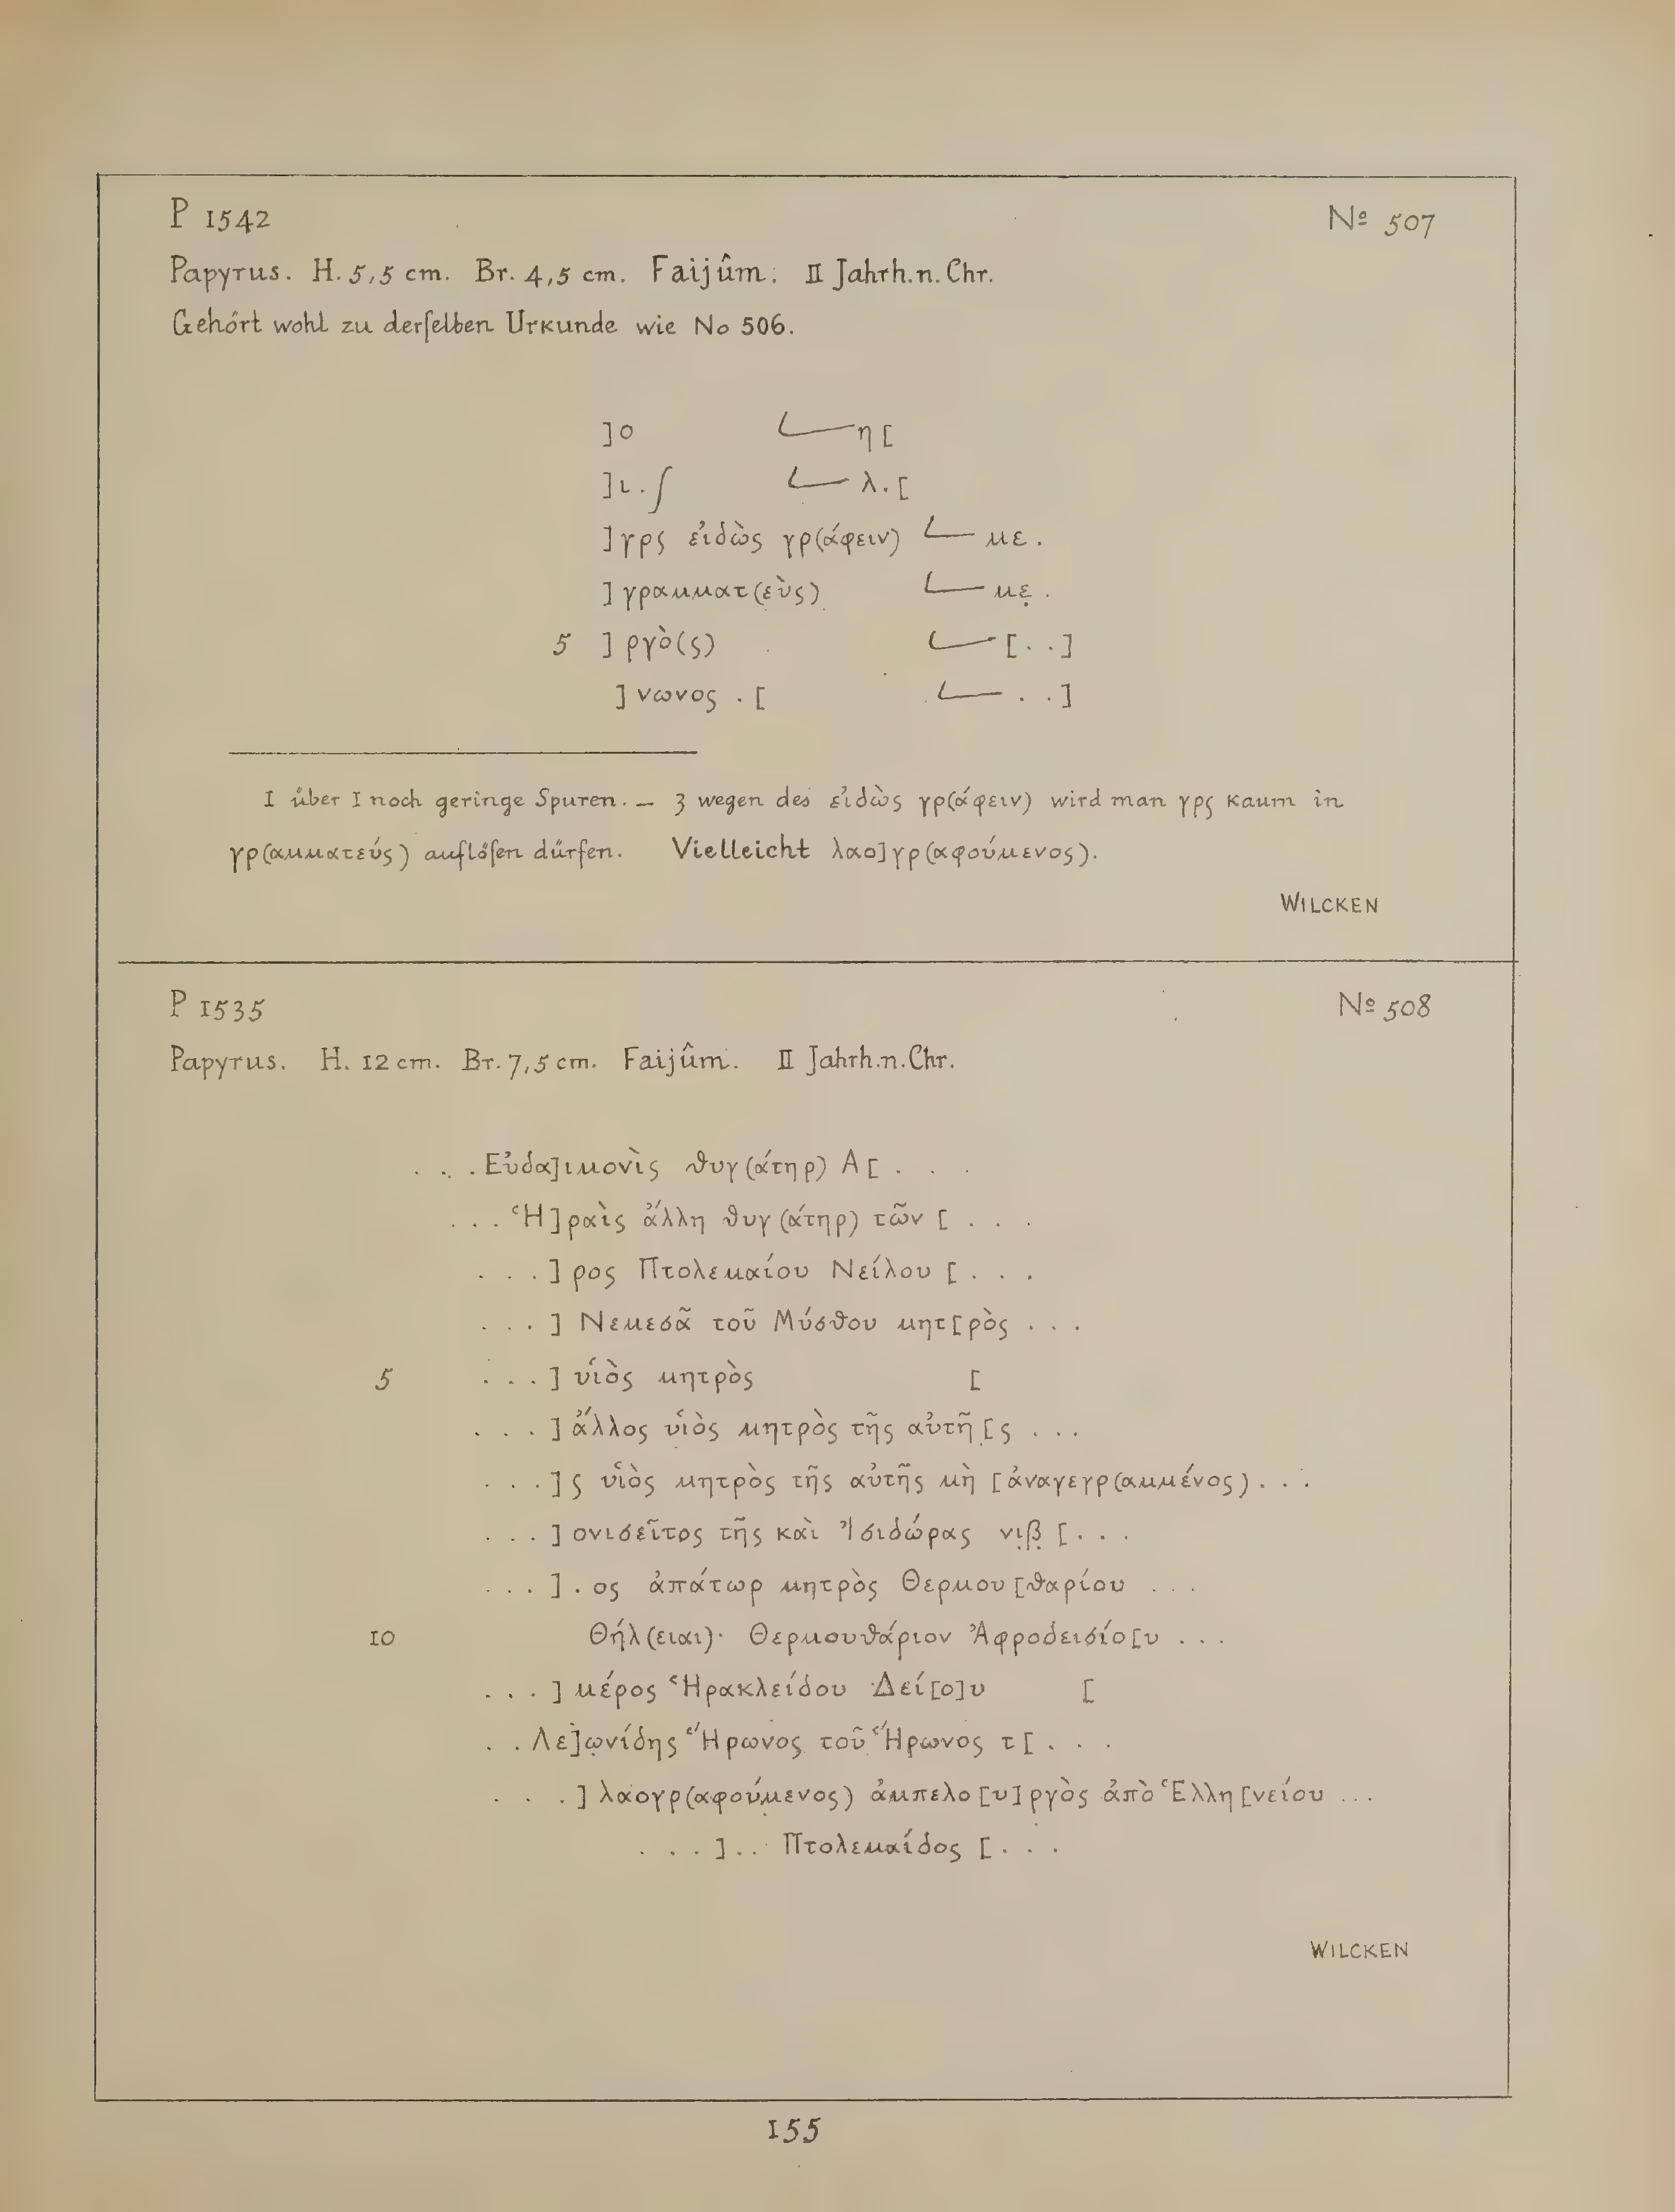 P 1542 Nº 507
Papyrus. H. 5,5 cm. Br. 4,5 cm. Faijûm. II Jahrh. n. Chr.
Gehört wohl zu derſelben Urkunde wie No 506.
]ο η[
]ι.∫ λ.[
]γρς εἰδὼς γρ(άφειν) με.
]γραμματ(εὺς) με̣.
5 ]ργὸ(ς) [..]
]νωνος .[ ..]
1 über 1 noch geringe Spuren. — 3 wegen des εἰδὼς γρ(άφειν) wird man γρς kaum in
γρ(αμματεύς) auflöſen dürfen. Vielleicht λαο]γρ(αφούμενος).
WILCKEN
P 1535 Nº 508
Papyrus. H. 12 cm. Br. 7,5 cm. Faijûm. II Jahrh. n. Chr.
. . . Εὐδα]ιμονὶς θυγ(άτηρ) Α[ . . .
. . . Ἡ]ραὶς ἄλλη θυγ(άτηρ) τῶν [ . . .
. . . ]ρος Πτολεμαίου Νείλου [ . . .
. . . ] Νεμεσᾶ τοῦ Μύσθου μητ[ρὸς . . .
5 . . . ] υἱὸς μητρὸς [
. . . ] ἄλλος υἱὸς μητρὸς τῆς αὐτῆ[ς . . .
. . . ]ς υἱὸς μητρὸς τῆς αὐτῆς μὴ [ἀναγεγρ(αμμένος) . . .
. . . ]ονισεῖτος τῆς καὶ Ἰσιδώρας νι̣β̣ [ . . .
. . . ] . ος ἀπάτωρ μητρὸς Θερμου[θαρίου . . .
10 Θήλ(ειαι)· Θερμουθάριον Ἀφροδεισίο[υ . . .
. . . ] μέρος Ἡρακλείδου Δεί[ο]υ [
. . Λε]ω̣νίδης Ἥρωνος τοῦ Ἥρωνος τ[ . . .
. . . ] λαογρ(αφούμενος) ἀμπελο[υ]ργὸς ἀπὸ Ἑλλη[νείου ...
. . . ] . . Πτολεμαίδος [ . . .
WILCKEN
155